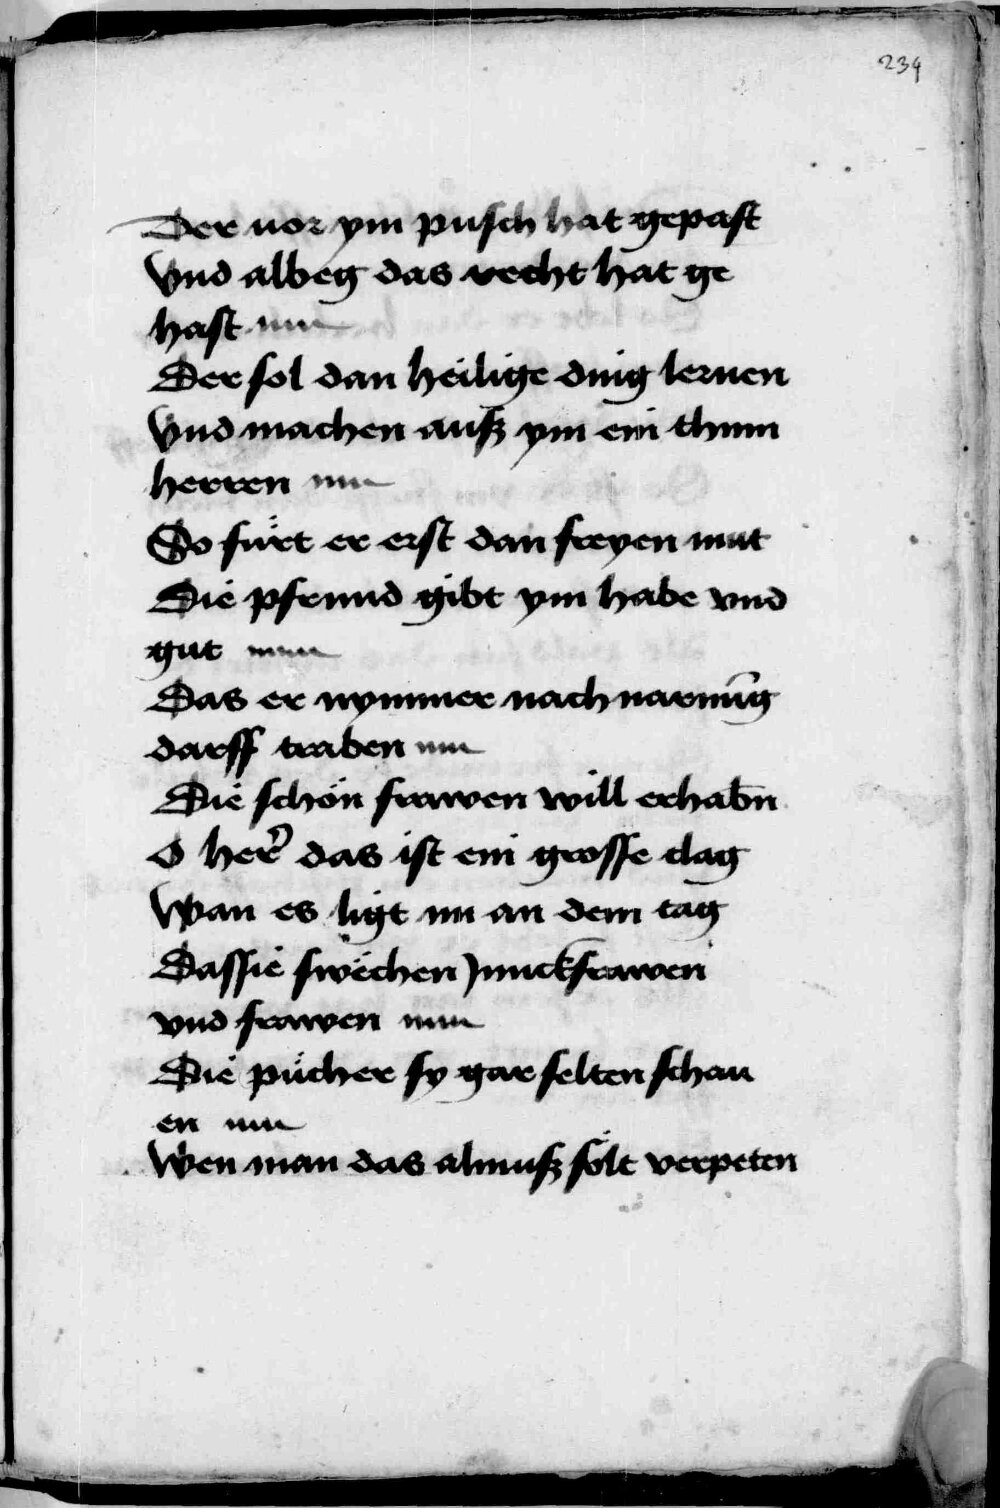 234
Der vor ym pusch hat gepast
Vnd albeg das recht hat ge
hast
Der sol dan heilige ding lernen
Vnd machen auß ym ein thum
herren
So fürt er erst dan freyen mut
Die pfrund gibt ym habe vnd
gut
Das er nymmer nach narnūg
darff traben
Die schön frawen will erhabn̄
O her̃ das ist ein grosse clag
Wan es ligt nu an dem tag
Dassie swëchen junckfrawen
vnd frawen
Die pücher sy gar selten schau
en
Wen man das almuß sölt verpeten